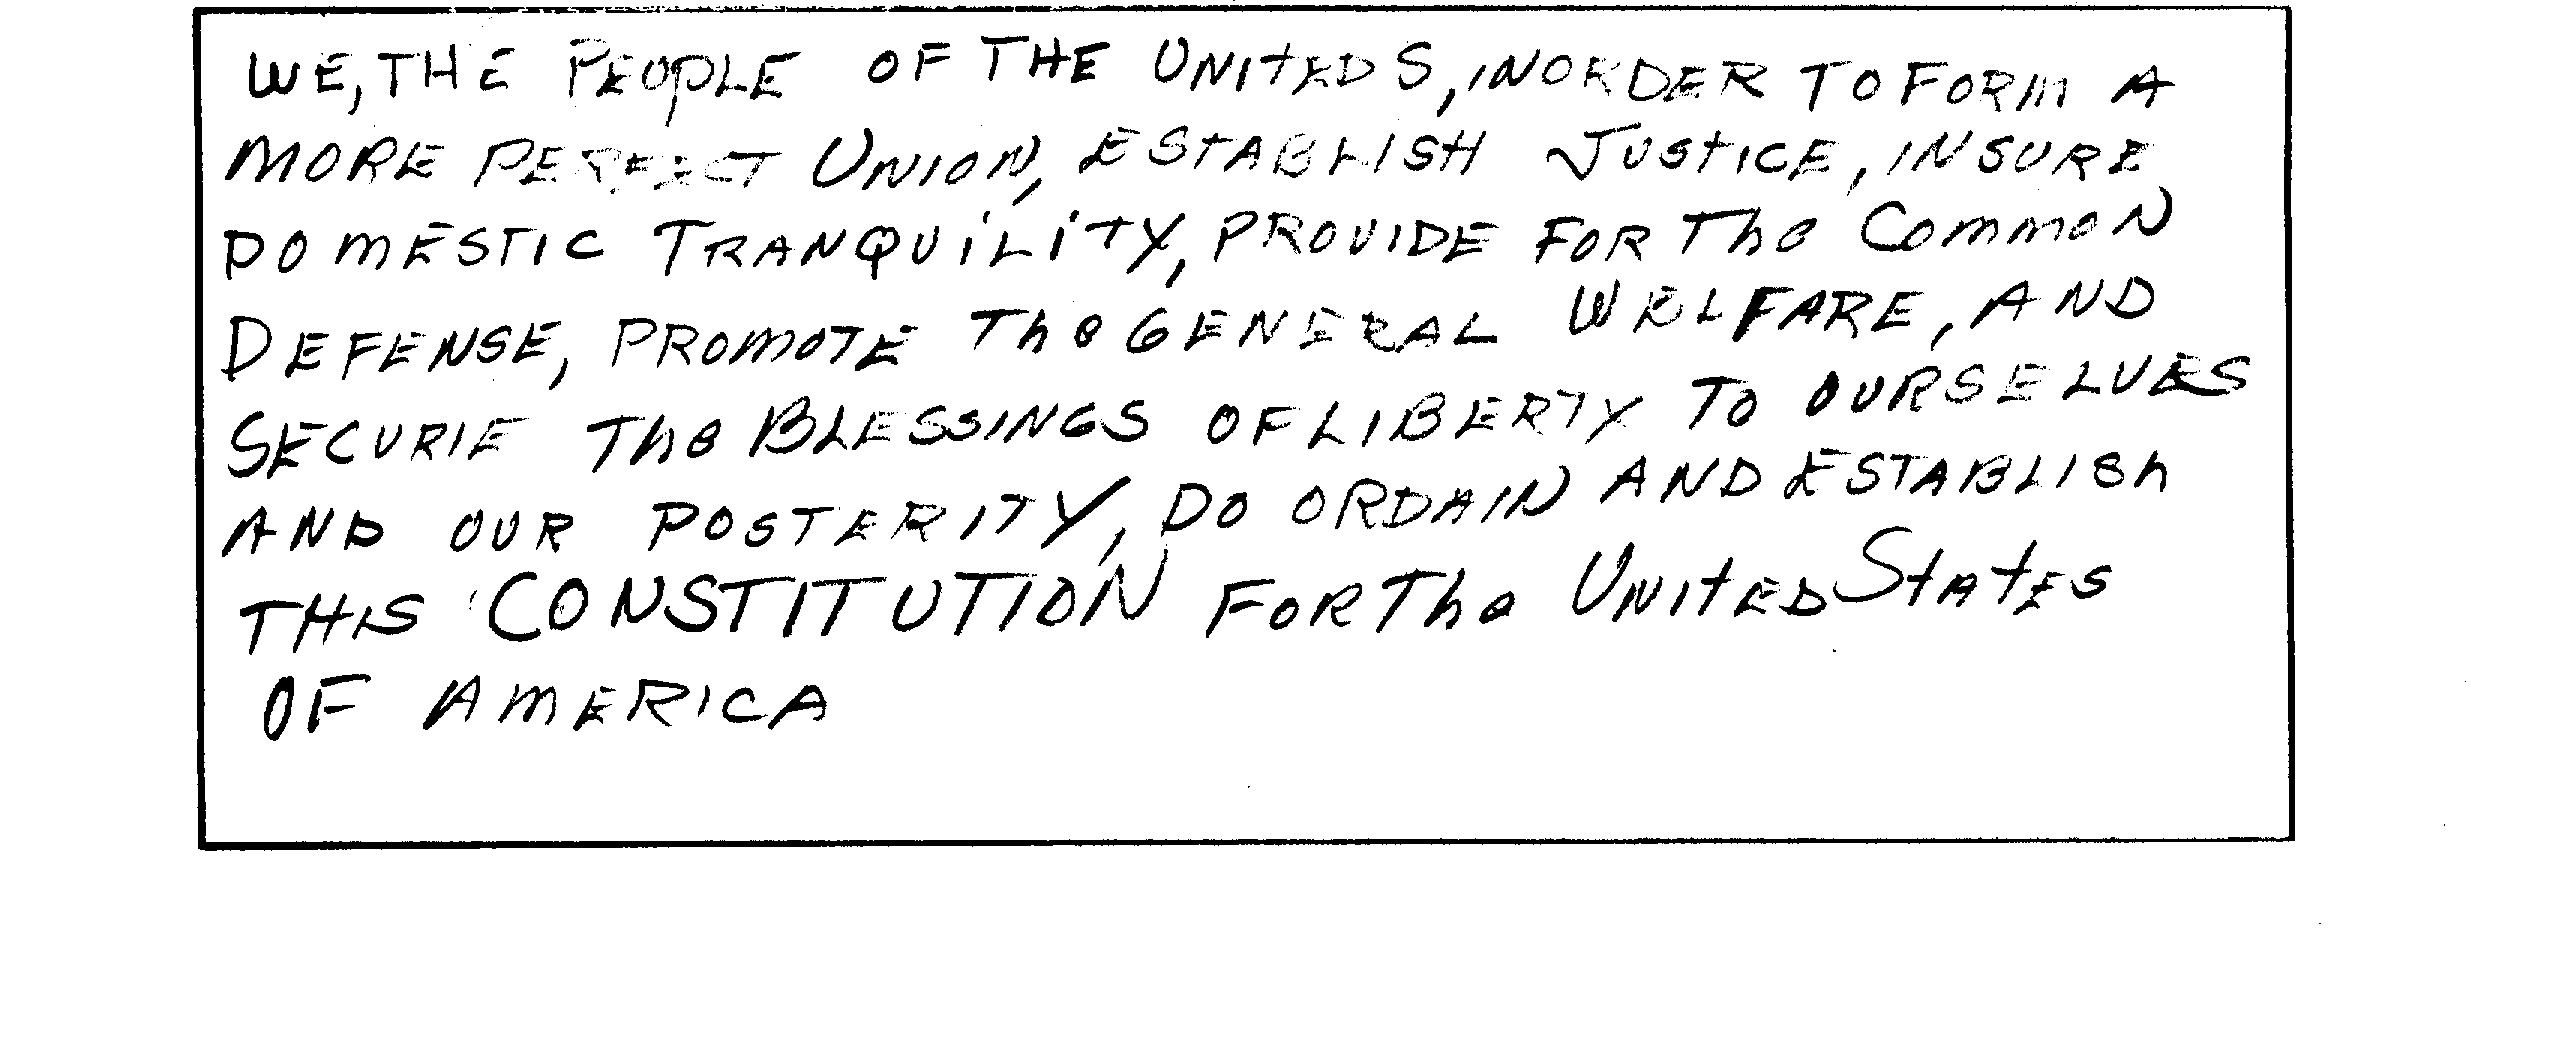 WE, THE PEOPLE OF THE UNITED S, IN ORDER TO FORM A
MORE PERFECT UNION, ESTABLISH JUSTICE, INSURE
DOMESTIC TRANQUILITY, PROVIDE FOR The COMMON
DEFENSE, PROMOTE The GENERAL WELFARE, AND
SECURIE The BLESSINGS OF LIBERTY TO OURSELVES
AND OUR POSTERITY, DO ORDAIN AND ESTABLISh
THIS CONSTITUTION FOR The UNITED STATES
OF AMERICA